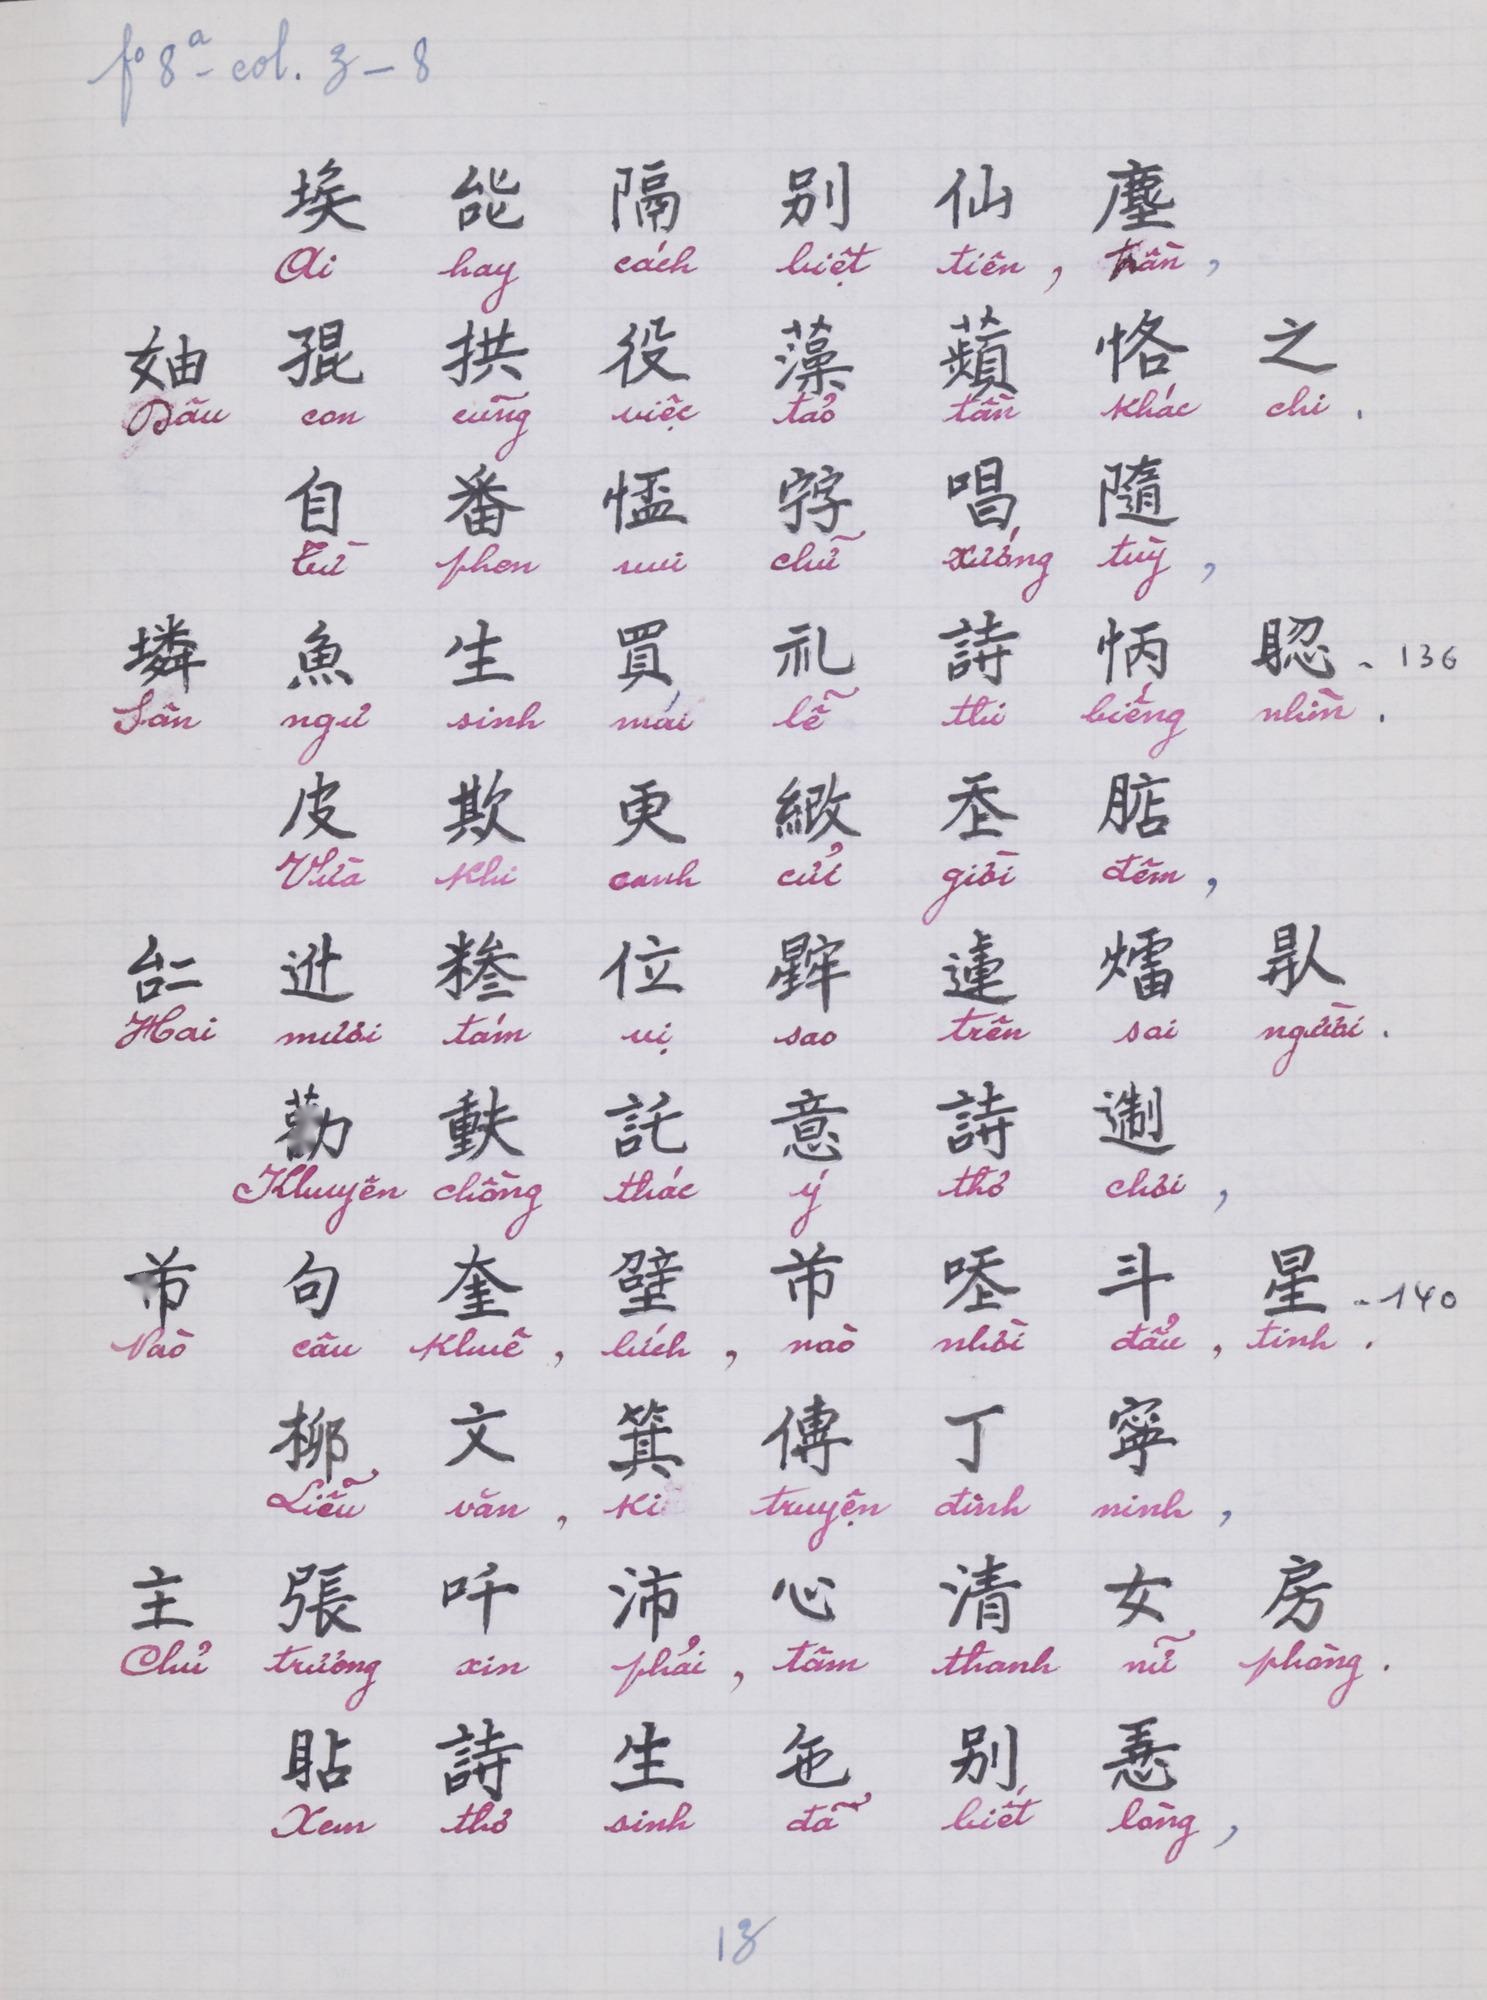 fº 8ª - col. 3 - 8
埃 能 隔 别 仙 塵
Ai hay cách biệt tiên, trần,
妯 𡥵 拱 役 藻 蘋 恪 之
Dâu con cũng việc tảo tần khác chi.
自 番 𢝙 𡨸 唱 隨
Từ phen vui chữ xướng tùy,
燐 魚 生 買 礼 詩 怲 䀡 - 136
Lân ngư sinh mới lễ thi biếng nhìn.
皮 欺 更 緻 𡗶 𣎀
Vừa khi canh cửi giời đêm,
𠄩 𨑮 糝 位 𣋀 蓮 𤒠 𠊛
Hai mươi tám vị sao trên soi người.
勸 𫯳 託 意 詩 𨔈
Khuyên chồng thác ý thơ chơi,
芇 句 奎 壁 芇 𠳒 斗 星 - 140
Nào câu Khuê, bích, nào nhời đẩu, tinh.
柳 文 箕 傳 丁 寧
Liễu văn, Ki truyện đinh ninh,
主 張 吀 沛 心 清 女 房
Chủ trương xin phải, tâm thanh nữ phòng.
貼 詩 生 㐌 别 𢚸
Xem thơ sinh đã biết lòng,
13